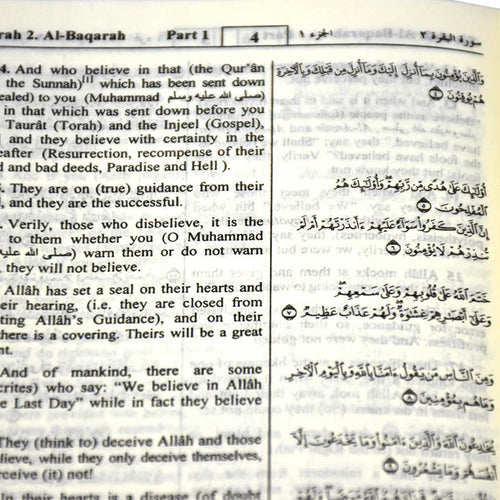 rah 2. Al-Baqarah Part 1 4 الجزء ١ سورة البقرة ٢
4. And who believe in that (the Qur'ân
the Sunnah)[1] which has been sent down
ealed) to you (Muhammad صلى الله عليه وسلم
in that which was sent down before you
Taurât (Torah) and the Injeel (Gospel),
and they believe with certainty in the
eafter (Resurrection, recompense of their
d and bad deeds, Paradise and Hell ).
. They are on (true) guidance from their
, and they are the successful.
. Verily, those who disbelieve, it is the
to them whether you (O Muhammad
صلى الله عليه) warn them or do not warn
, they will not believe.
Allâh has set a seal on their hearts and
eir hearing, (i.e. they are closed from
ting Allâh's Guidance), and on their
there is a covering. Theirs will be a great
nt.
And of mankind, there are some
crites) who say: "We believe in Allâh
e Last Day" while in fact they believe
They (think to) deceive Allâh and those
lieve, while they only deceive themselves,
rceive (it) not!
In their hearts is a disease (of doubt
وَالَّذِينَ يُؤْمِنُونَ بِمَا أُنزِلَ إِلَيْكَ وَمَا أُنزِلَ مِن قَبْلِكَ وَبِالْآخِرَةِ
هُمْ يُوقِنُونَ ٤
أُولَٰئِكَ عَلَىٰ هُدًى مِّن رَّبِّهِمْ وَأُولَٰئِكَ هُمُ
الْمُفْلِحُونَ ٥
إِنَّ الَّذِينَ كَفَرُوا سَوَاءٌ عَلَيْهِمْ ءَأَنذَرْتَهُمْ أَمْ لَمْ
تُنذِرْهُمْ لَا يُؤْمِنُونَ ٦
خَتَمَ اللَّهُ عَلَىٰ قُلُوبِهِمْ وَعَلَىٰ سَمْعِهِمْ
وَعَلَىٰ أَبْصَارِهِمْ غِشَاوَةٌ وَلَهُمْ عَذَابٌ عَظِيمٌ ٧
وَمِنَ النَّاسِ مَن يَقُولُ ءَامَنَّا بِاللَّهِ وَبِالْيَوْمِ الْآخِرِ
وَمَا هُم بِمُؤْمِنِينَ ٨
يُخَادِعُونَ اللَّهَ وَالَّذِينَ ءَامَنُوا وَمَا يَخْدَعُونَ إِلَّا
أَنفُسَهُمْ وَمَا يَشْعُرُونَ ٩